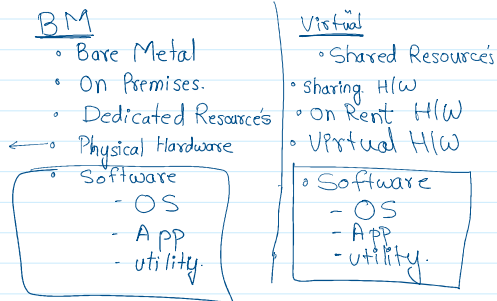 BM
• Bare Metal
• On Premises.
• Dedicated Resource's
• Physical Hardware
• Software
- OS
- App
- utility.
Virtual
• Shared Resource's
• Sharing H/W
• On Rent H/W
• Virtual H/W
• Software
- OS
- App
- utility.